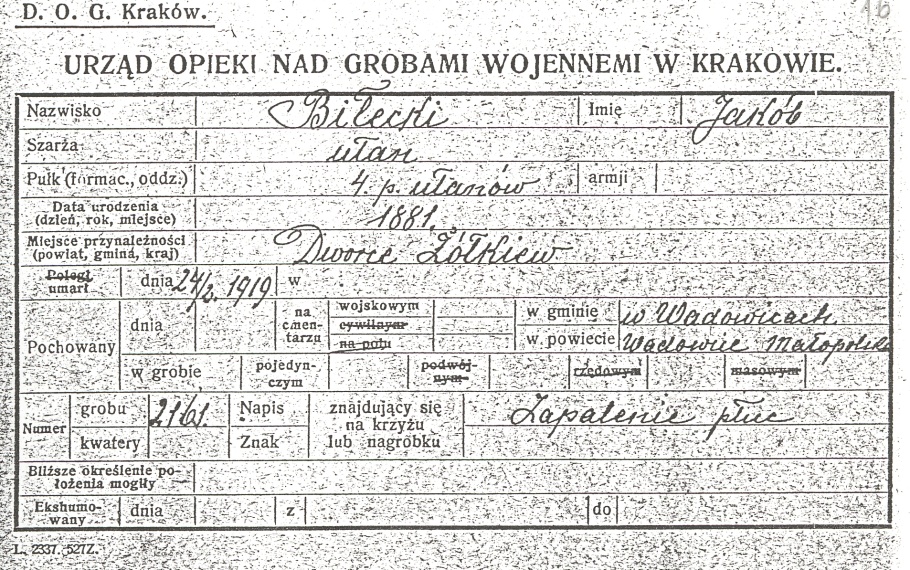 D. O. G. Kraków.
16
URZĄD OPIEKI NAD GROBAMI WOJENNEMI W KRAKOWIE.
Nazwisko Biłecki Imię Jakób
Szarża ułan
Pułk (formac., oddz.) 4. p. ułanów armji
Data urodzenia
(dzień, rok, miejsce) 1881.
Miejsce przynależności
(powiat, gmina, kraj) Dworce Żółkiew
Poległ
umarł dnia 24/2. 1919 w
Pochowany dnia na cmen-tarzu wojskowym cywilnym na polu w gminie w Wadowicach
w powiecie Wadowice Małopolska
w grobie pojedyn-czym podwój-nym rzędowym masowym
Numer grobu 2161. Napis znajdujący się
na krzyżu Zapalenie płuc
kwatery Znak lub nagrobku
Bliższe określenie po-
łożenia mogiły
Ekshumo-
wany dnia z do
L. 2337. 527Z.